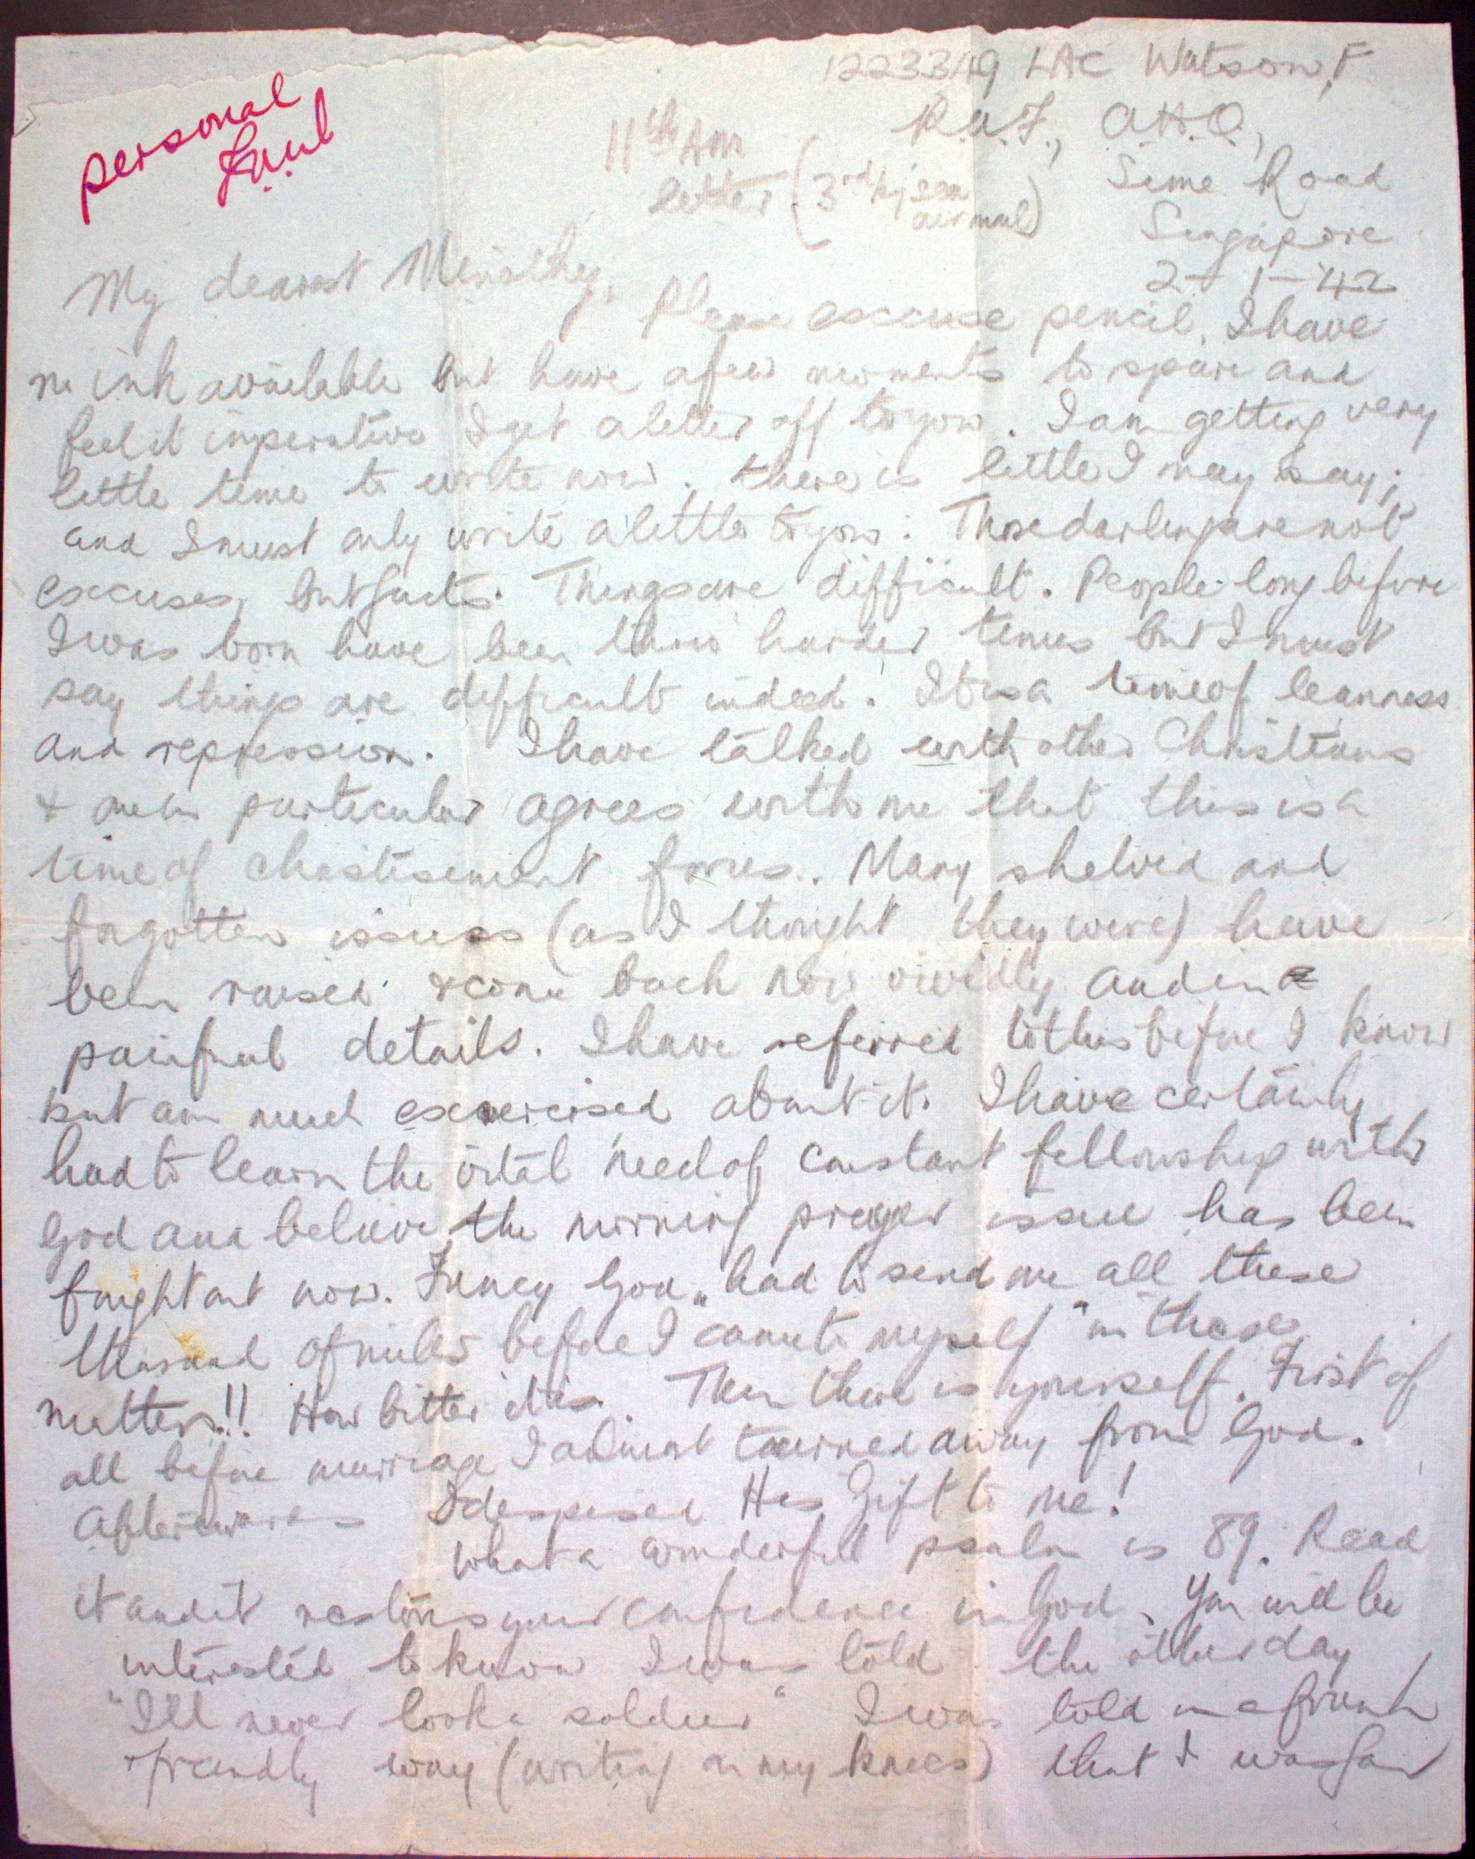 personal
1223349 LAC Watson, F
R.A.F., A.H.Q.,
11th AM
letter (3rd by sea air mail)
Sime Road
Singapore
2-1-42
My dearest
Please excuse pencil, I have
no ink available but have a few moments to spare and
feel it imperative I get a letter off to you. I am getting very
little time to write now. there is little I may say;
and I must only write a little to you. These darling are not
excuses, but facts. Things are difficult. People long before
I was born have been thro' harder times but I must
say things are difficult indeed. It is a time of leanness
and repression. I have talked with other Christians
& one in particular agrees with me that this is a
time of chastisement for us. Many shelved and
forgotten issues (as I thought they were) have
been raised & come back now vividly and in
painful details. I have referred to this before I know
but am much exercised about it. I have certainly
had to learn the vital need of constant fellowship with
God and believe the morning prayer issue has been
fought out now. Fancy God "had to send me all these
thousand of miles before I came to myself" in these
matters!! How bitter it is. Then there is yourself. First of
all before marriage I almost tourned away from God.
Afterwards I despised His Gift to me!
What a wonderful psalm is 89. Read
it and it restores your confidence in God. You will be
interested to know I was told the other day
"I'll never look a soldier" I was told in a frank
& friendly way (writing on my knees) that I was far